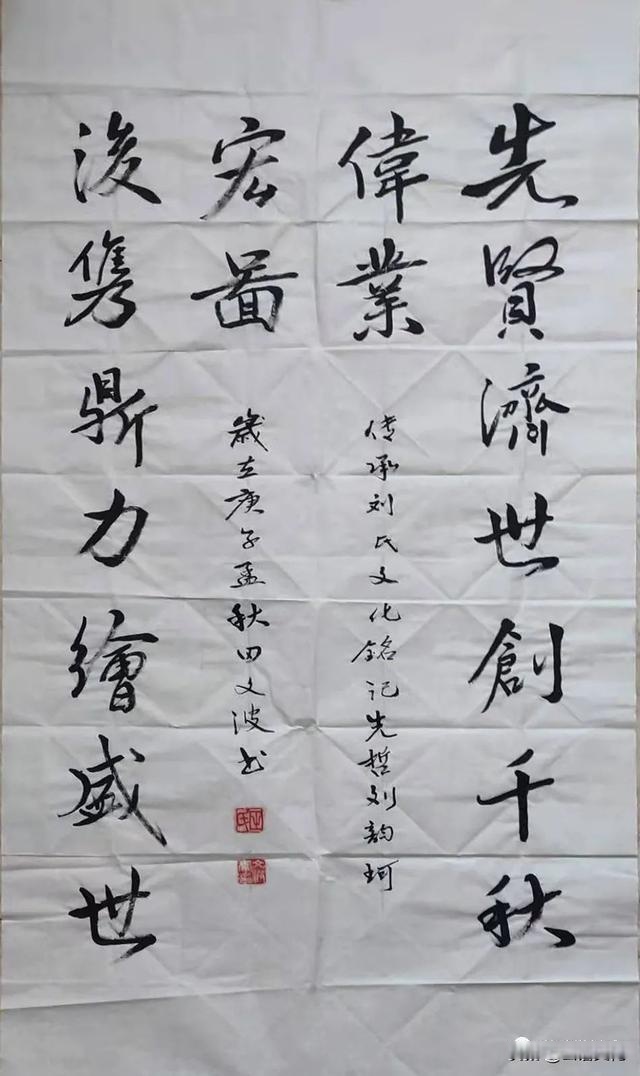 先賢濟世創千秋
偉業
传承刘氏文化铭记先哲刘韵珂
宏图
歲在庚子孟秋田文波书
浚隽鼎力繪盛世